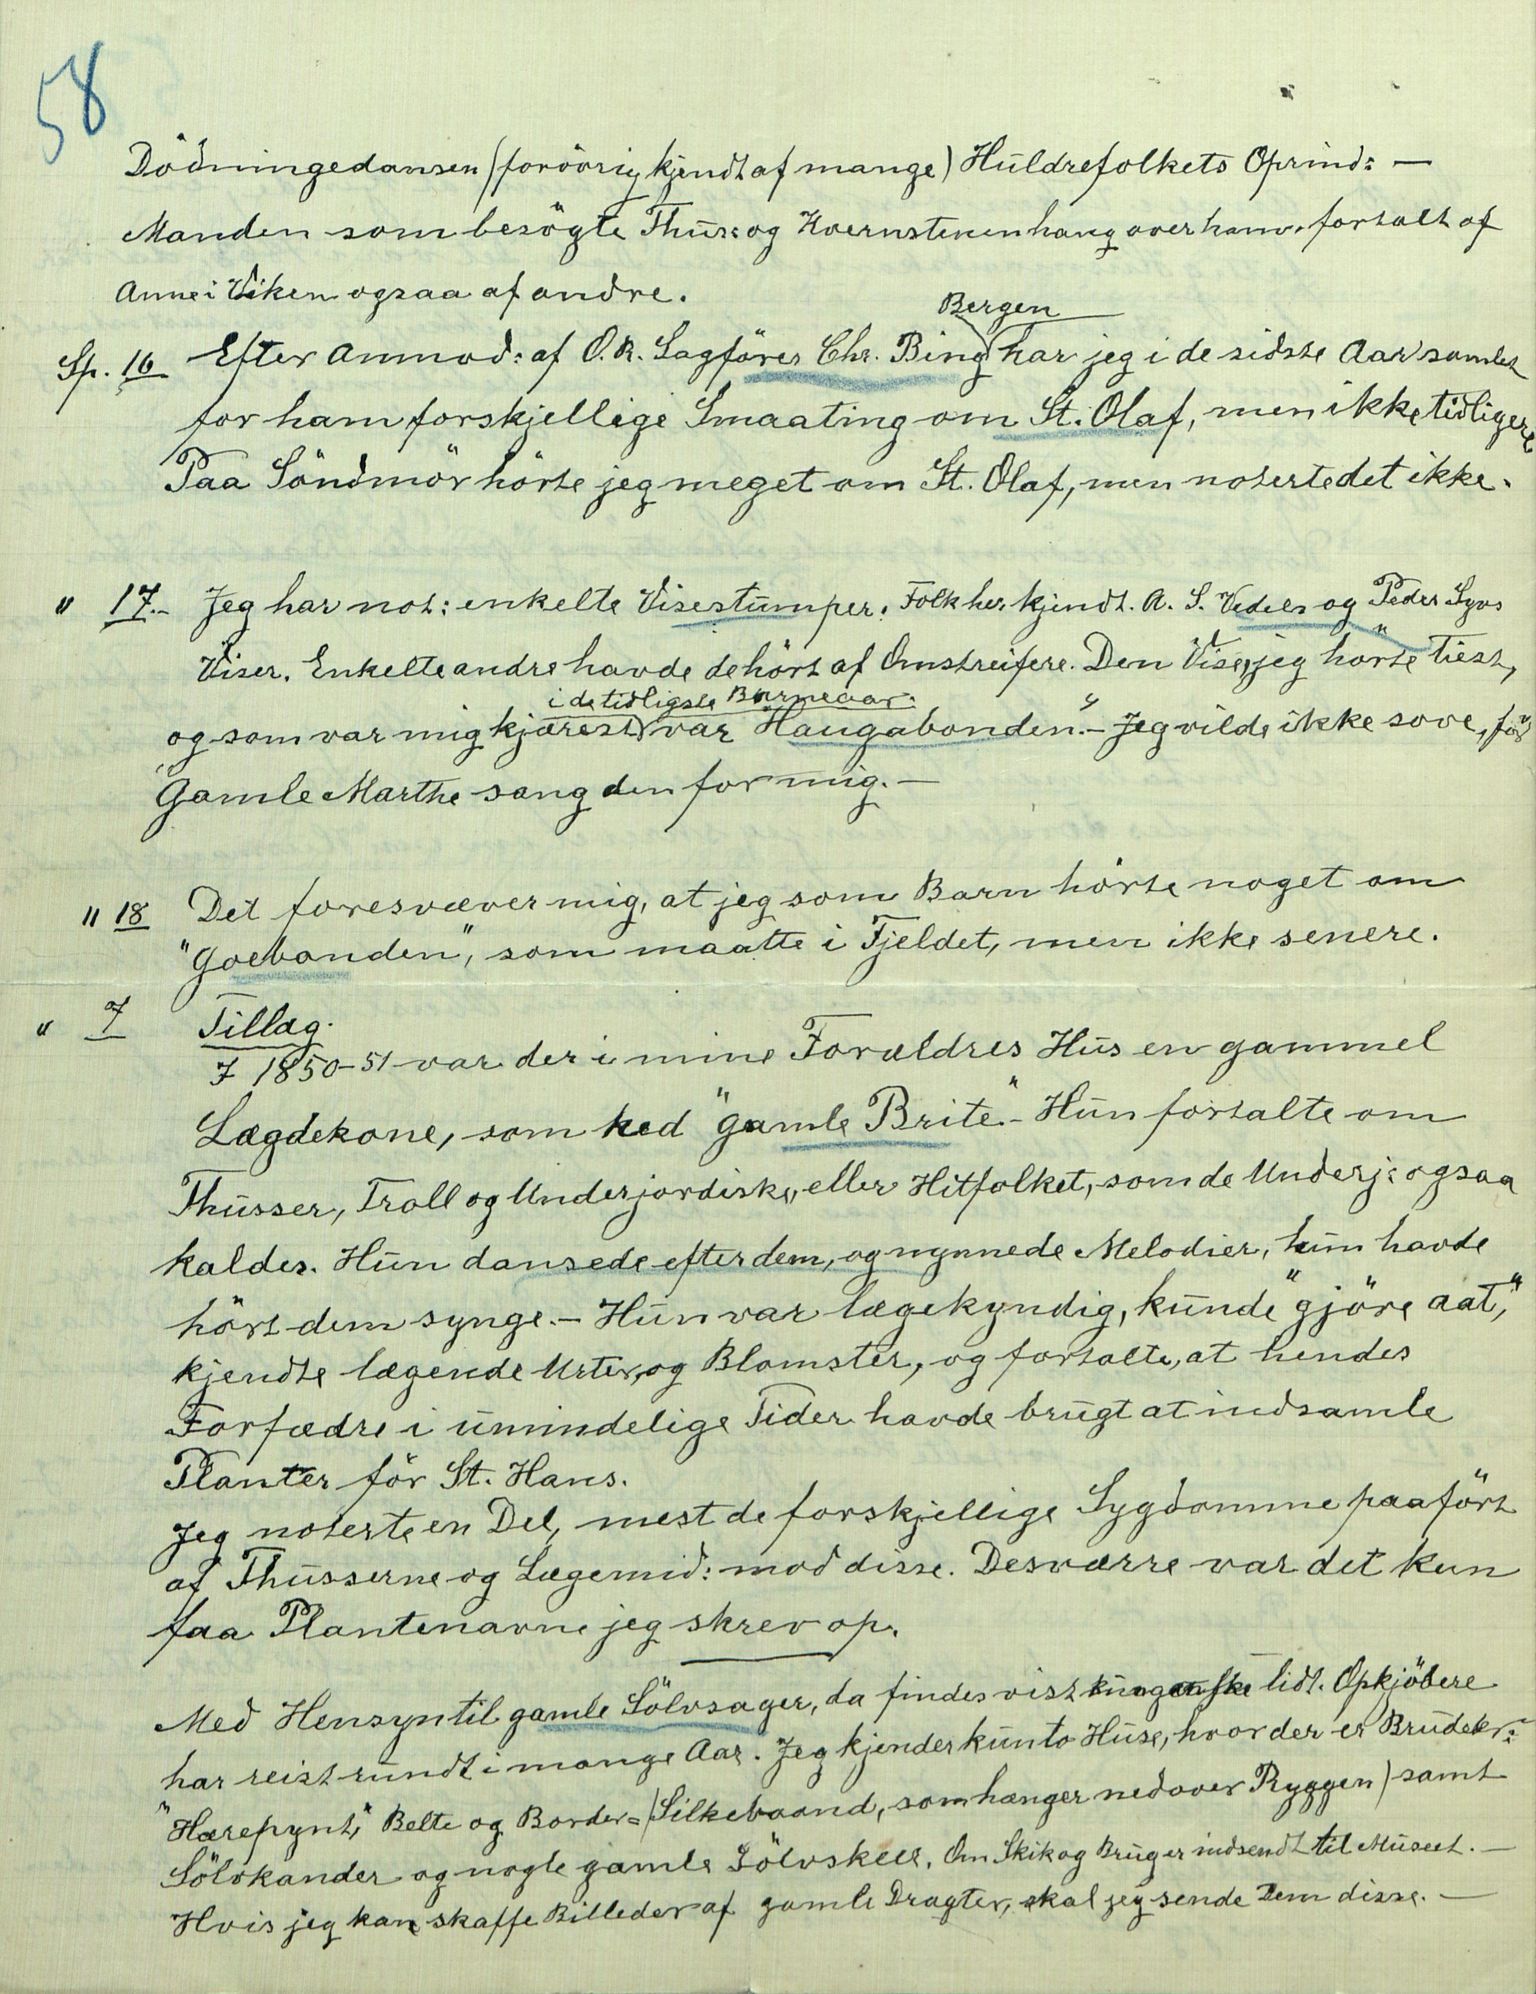 58
Dödningedansen (forövrig kjendt af mange) Huldrefolkets Oprind: —
Manden som besögte Thus: og Kvernstenen hang over ham, fortalt af
Anne i Viken ogsaa af andre.
Bergen
Sp. 16 Efter Anmod: af O. R. Sagförer Chr. Bing har jeg i de sidste Aar samlet
for ham forskjellige Smaating om St. Olaf, men ikke tidligere
Paa Söndmör hörte jeg meget om St. Olaf, men noterte det ikke.
" 17.- Jeg har not: enkelte Visestumper. Folk her kjendt. A. S. Vedels og Peder Syvs
Viser. Enkelte andre havde de hört af Omstreifere. Den Vise, jeg hörte tiest,
i de tidligste Barneaar.
og som var mig kjærest var "Haugabonden".- Jeg vilde ikke sove, för
Gamle Marthe sang den for mig. —
" 18 Det foresvæver mig, at jeg som Barn hörte noget om
"Goebonden", som maatte i Fjeldet, men ikke senere.
" 7 Tillæg.
I 1850-51 var der i mine Forældres Hus en gammel
Lægdekone, som hed "gamle Brite".- Hun fortalte om
Thusser, Troll og Underjordiske, eller Hitfolket, som de Underj: ogsaa
kaldes. Hun dansede efter dem, og nynnede Melodier, hun havde
hört dem synge. - Hun var lægekyndig, kunde "gjöre aat,"
kjendte lægende Urter, og Blomster, og fortalte, at hendes
Forfædre i umindelige Tider havde brugt at indsamle
Planter för St. Hans.
Jeg noterte en Del, mest de forskjellige Sygdomme paafört
af Thusserne og Lægemid: mod disse. Desværre var det kun
faa Plantenavne jeg skrev op.
Med Hensyn til gamle Sölvsager, da findes vist kun ganske lidt. Opkjöbere
har reist rundt i mange Aar. Jeg kjender kun to Huse, hvor der er Brudekr:
"Hærepynt," Belte og Border= (Silkebaand, som hænger nedover Ryggen) samt
Sölvkander og nogle gamle Sölvskeer. Om Skik og Brug er indsendt til Museet. —
Hvis jeg kan skaffe Billeder af gamle Dragter, skal jeg sende Dem disse. —